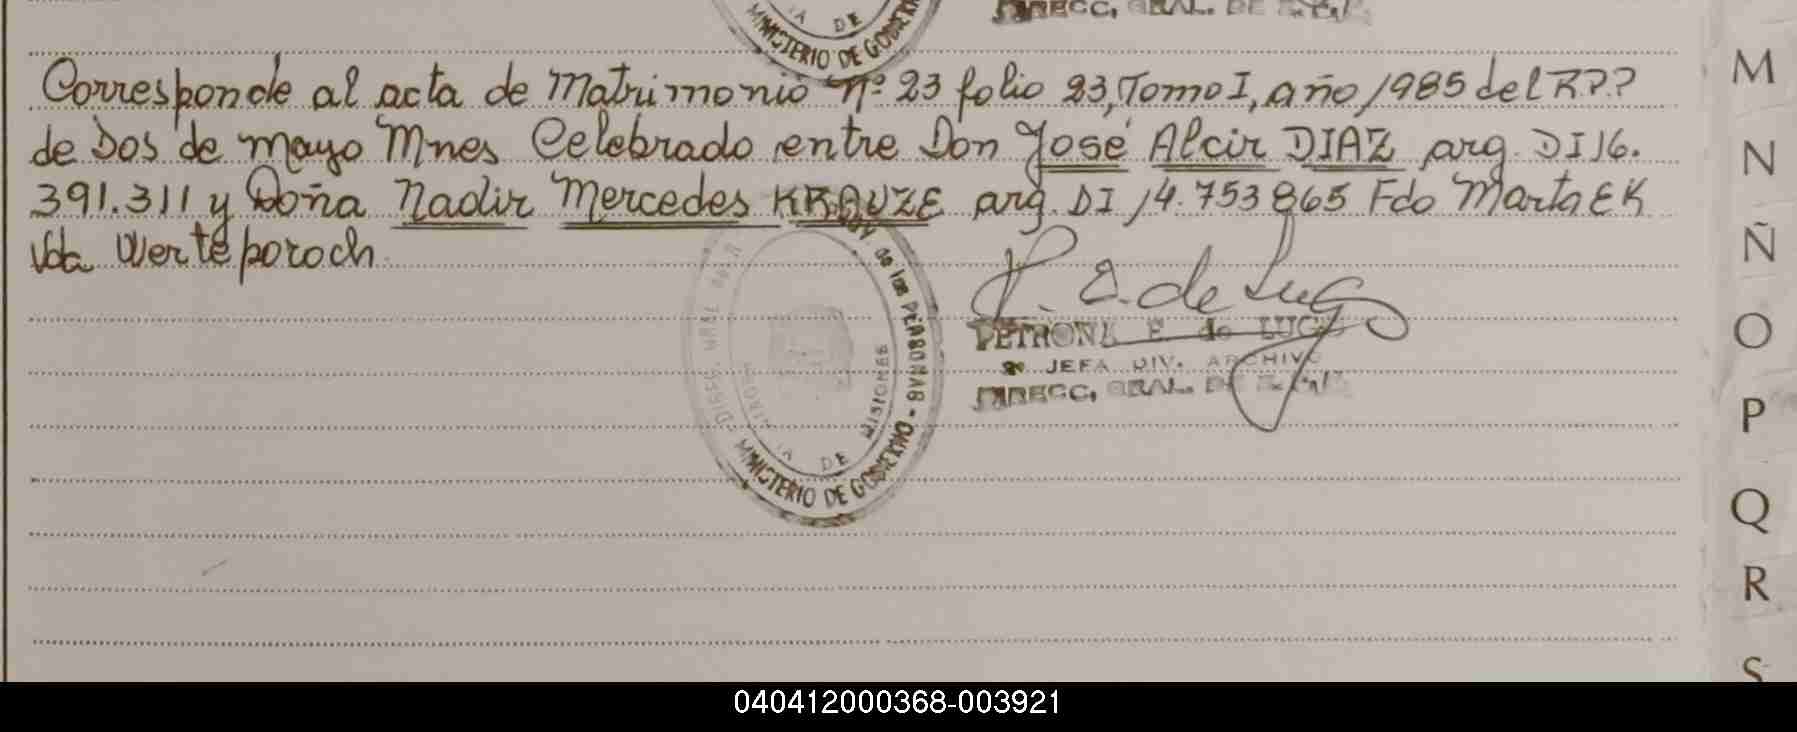 MINISTERIO DE GOBIERNO
DE
DIRECC. GRAL. DE
Corresponde al acta de Matrimonio nº 23 folio 23, Tomo I, año 1985 del R.P.P
de Dos de mayo Mnes Celebrado entre Don José Alcir DIAZ arg. DI 16.
391.311 y Doña Nadir Mercedes KRAUZE arg. DI 14.753865 Fdo Marta E K
Vda Werteporoch
P. E. de Lugo
PETRONA E. de LUGO
JEFA DIV. ARCHIVO
DIRECC. GRAL. DE
de las PERSONAS - MINISTERIO DE GOBIERNO
MISIONES
DE
M
N
Ñ
O
P
Q
R
S
040412000368-003921